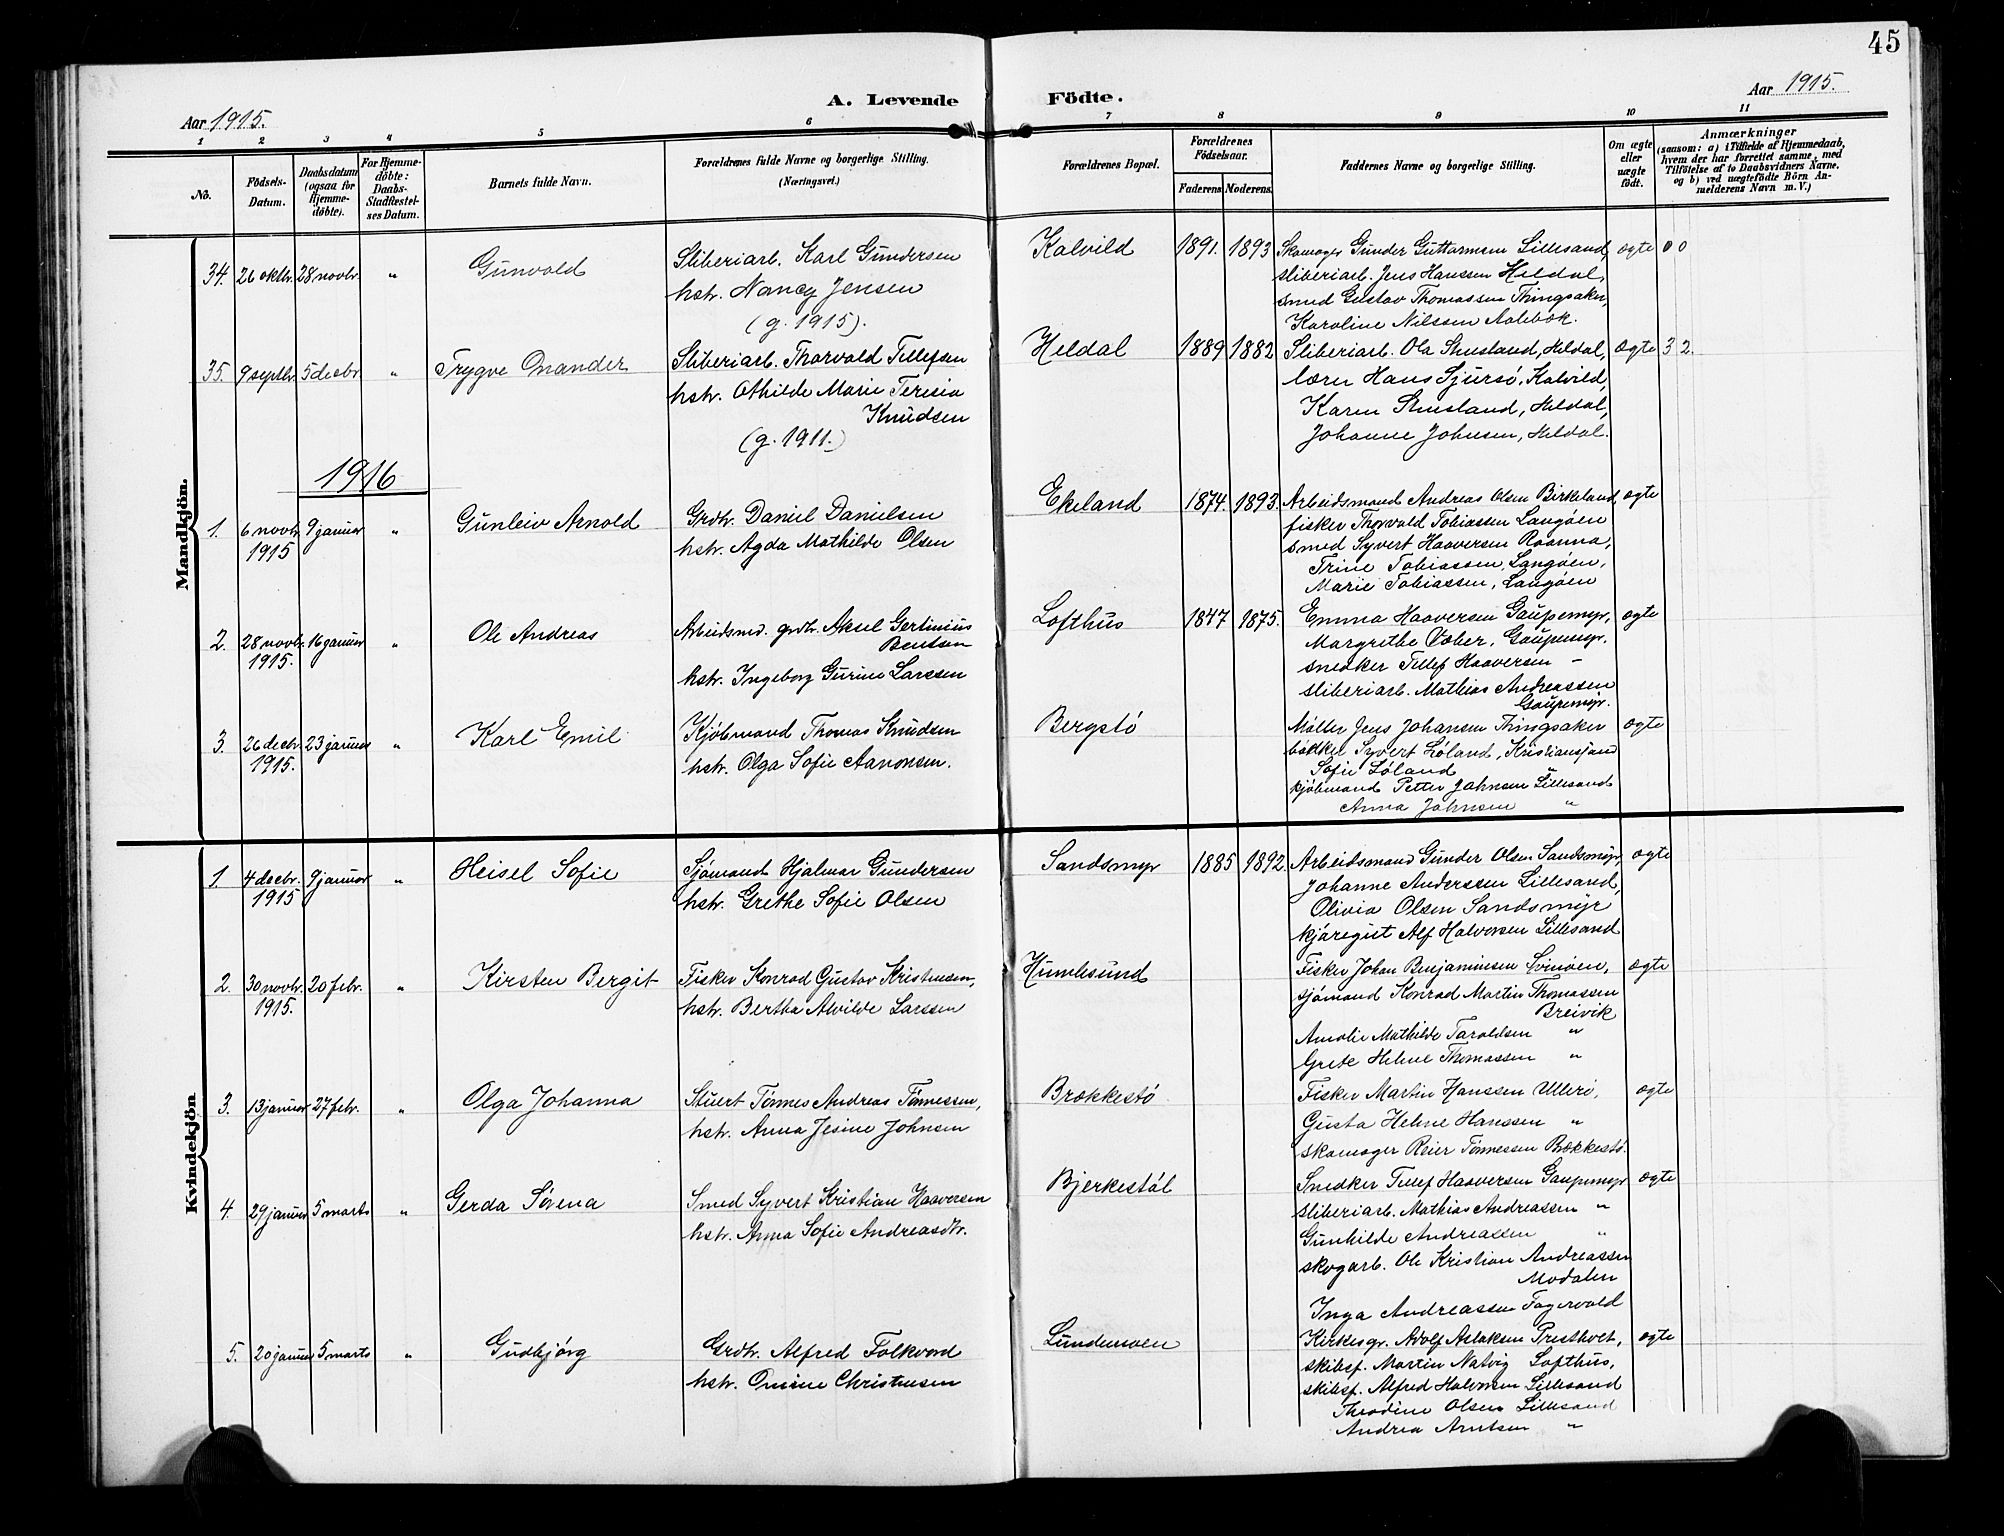 45
Aar 1915.
A. Levende Födte.
Aar 1915.
1 2 3 4 5 6 7 8 9 10 11
No.
Födsels-Datum.
Daabsdatum (ogsaa for Hjemme-døbte).
For Hjemme-døbte: Daabs-Stadfæstel-ses Datum.
Barnets fulde Navn.
Forældrenes fulde Navne og borgerlige Stilling.
(Næringsvei.)
Forældrenes Bopæl.
Forældrenes Födselsaar.
Faderens. Moderens.
Faddernes Navne og borgerlige Stilling.
Om ægte eller uægte født.
Anmærkninger
(saasom: a) i Tilfælde af Hjemmedaab, hvem der har forrettet samme, med Tilføielse af to Daabsvidners Navne. og b) ved uægtefødte Börn An-melderens Navn m. V.)
Mandkjön.
34. 26 oktbr. 28 novbr. " Gunvald
Sliberiarb. Karl Gundersen
hstr. Nancy Jensen
(g. 1915).
Kalvild 1891. 1893
Skomager Gunder Guttormsen Lillesand,
sliberiarb. Jens Hanssen Heldal,
smed Gustav Thomassen Thingsaker,
Karoline Nilssen Aalebæk.
ægte 0 0
35. 9 septbr. 5 decbr. " Trygve Onander
Sliberiarb. Thorvald Tellefsen
hstr. Othilde Marie Teresia
Knudsen
(g. 1911.)
Heldal 1889 1882
Sliberiarb. Ola Stusland, Heldal,
lærer Hans Sjursö, Kalvild,
Karen Stusland, Heldal,
Johanne Johnsen, Heldal.
ægte 3 2.
1916
1. 6 novbr. 1915 9 januar " Gunleiv Arnold
Grdbr. Daniel Danielsen
hstr. Agda Mathilde Olsen
Ekeland 1874. 1893.
Arbeidsmand Andreas Olsen Birkeland
fisker Thorvald Tobiassen Langöen
smed Syvert Haaversen Roanna,
Trine Tobiassen, Langöen,
Marie Tobiassen, Langöen
ægte
2. 28 novbr. 1915. 16 januar " Ole Andreas
Arbeidsmd. grdbr. Aksel Gertinius
Bentsen
hstr. Ingeborg Gurine Larssen
Lofthus 1847 1875.
Emma Haaversen Gaupemyr,
Margrethe Væber, Gaupemyr.
snedker Tellef Haaversen –
sliberiarb. Mathias Andreassen
Gaupemyr.
ægte
3. 26 decbr. 1915. 23 januar " Karl Emil
Kjøbmand Thomas Knudsen
hstr. Olga Sofie Aanonsen.
Bergstö
Møller Jens Johansen Thingsaker
bödker Syvert Löland, Kristianssand
Sofie Löland "
kjøbmand Petter Johnsen Lillesand
Anna Johnsen "
ægte
Kvindekjön
1. 4 decbr. 1915 9 januar " Heisel Sofie
Sjömand Hjalmar Gundersen
hstr. Grethe Sofie Olsen
Sandsmyr 1885 1892.
Arbeidsmand Gunder Olsen Sandsmyr,
Johanne Anderssen Lillesand,
Olivia Olsen Sandsmyr
Alf Halvorsen Lillesand
ægte
2. 30 novbr. 1915. 20 febr. " Kirsten Bergit
Fisker Konrad Gustav Kristensen,
hstr. Bertha Alvilde Larssen
Humlesund
Fisker Johan Benjaminsen Svinöen,
sjömand Konrad Martin Thomassen
Breivik
Amalie Mathilde Taraldsen "
Grete Helene Thomassen "
ægte
3. 13 januar 27 febr. " Olga Johanna
Stuert Tönnes Andreas Tönnessen,
hstr. Anna Jesine Johnsen
Brækkestö
Fisker Martin Hanssen Ullerö,
Gusta Helene Hanssen "
skomager Reier Tönnessen Brækkestö.
ægte
4. 29 januar 5 marts " Gerda Sörena
Smed Syvert Kristian Haaversen
hstr. Anna Sofie Andreasdtr.
Bjerkestöl
Snedker Tellef Haaversen Gaupemyr
sliberiarb. Mathias Andreassen "
Gunhilde Andreassen "
skogarb. Ole Kristian Andreassen
Modalen
Inga Andreassen Fagervold
ægte
5. 20 januar 5 marts " Gudbjörg
Grdbr. Alfred Folkvord
hstr. Omine Christensen
Lundemoen
Kirkesgr. Adolf Aslaksen Prestholt,
skibsf. Martin Natvig Lofthus,
skibsf. Alfred Halvorsen Lillesand
Theodine Olsen Lillesand
Andrea Arntsen "
ægte